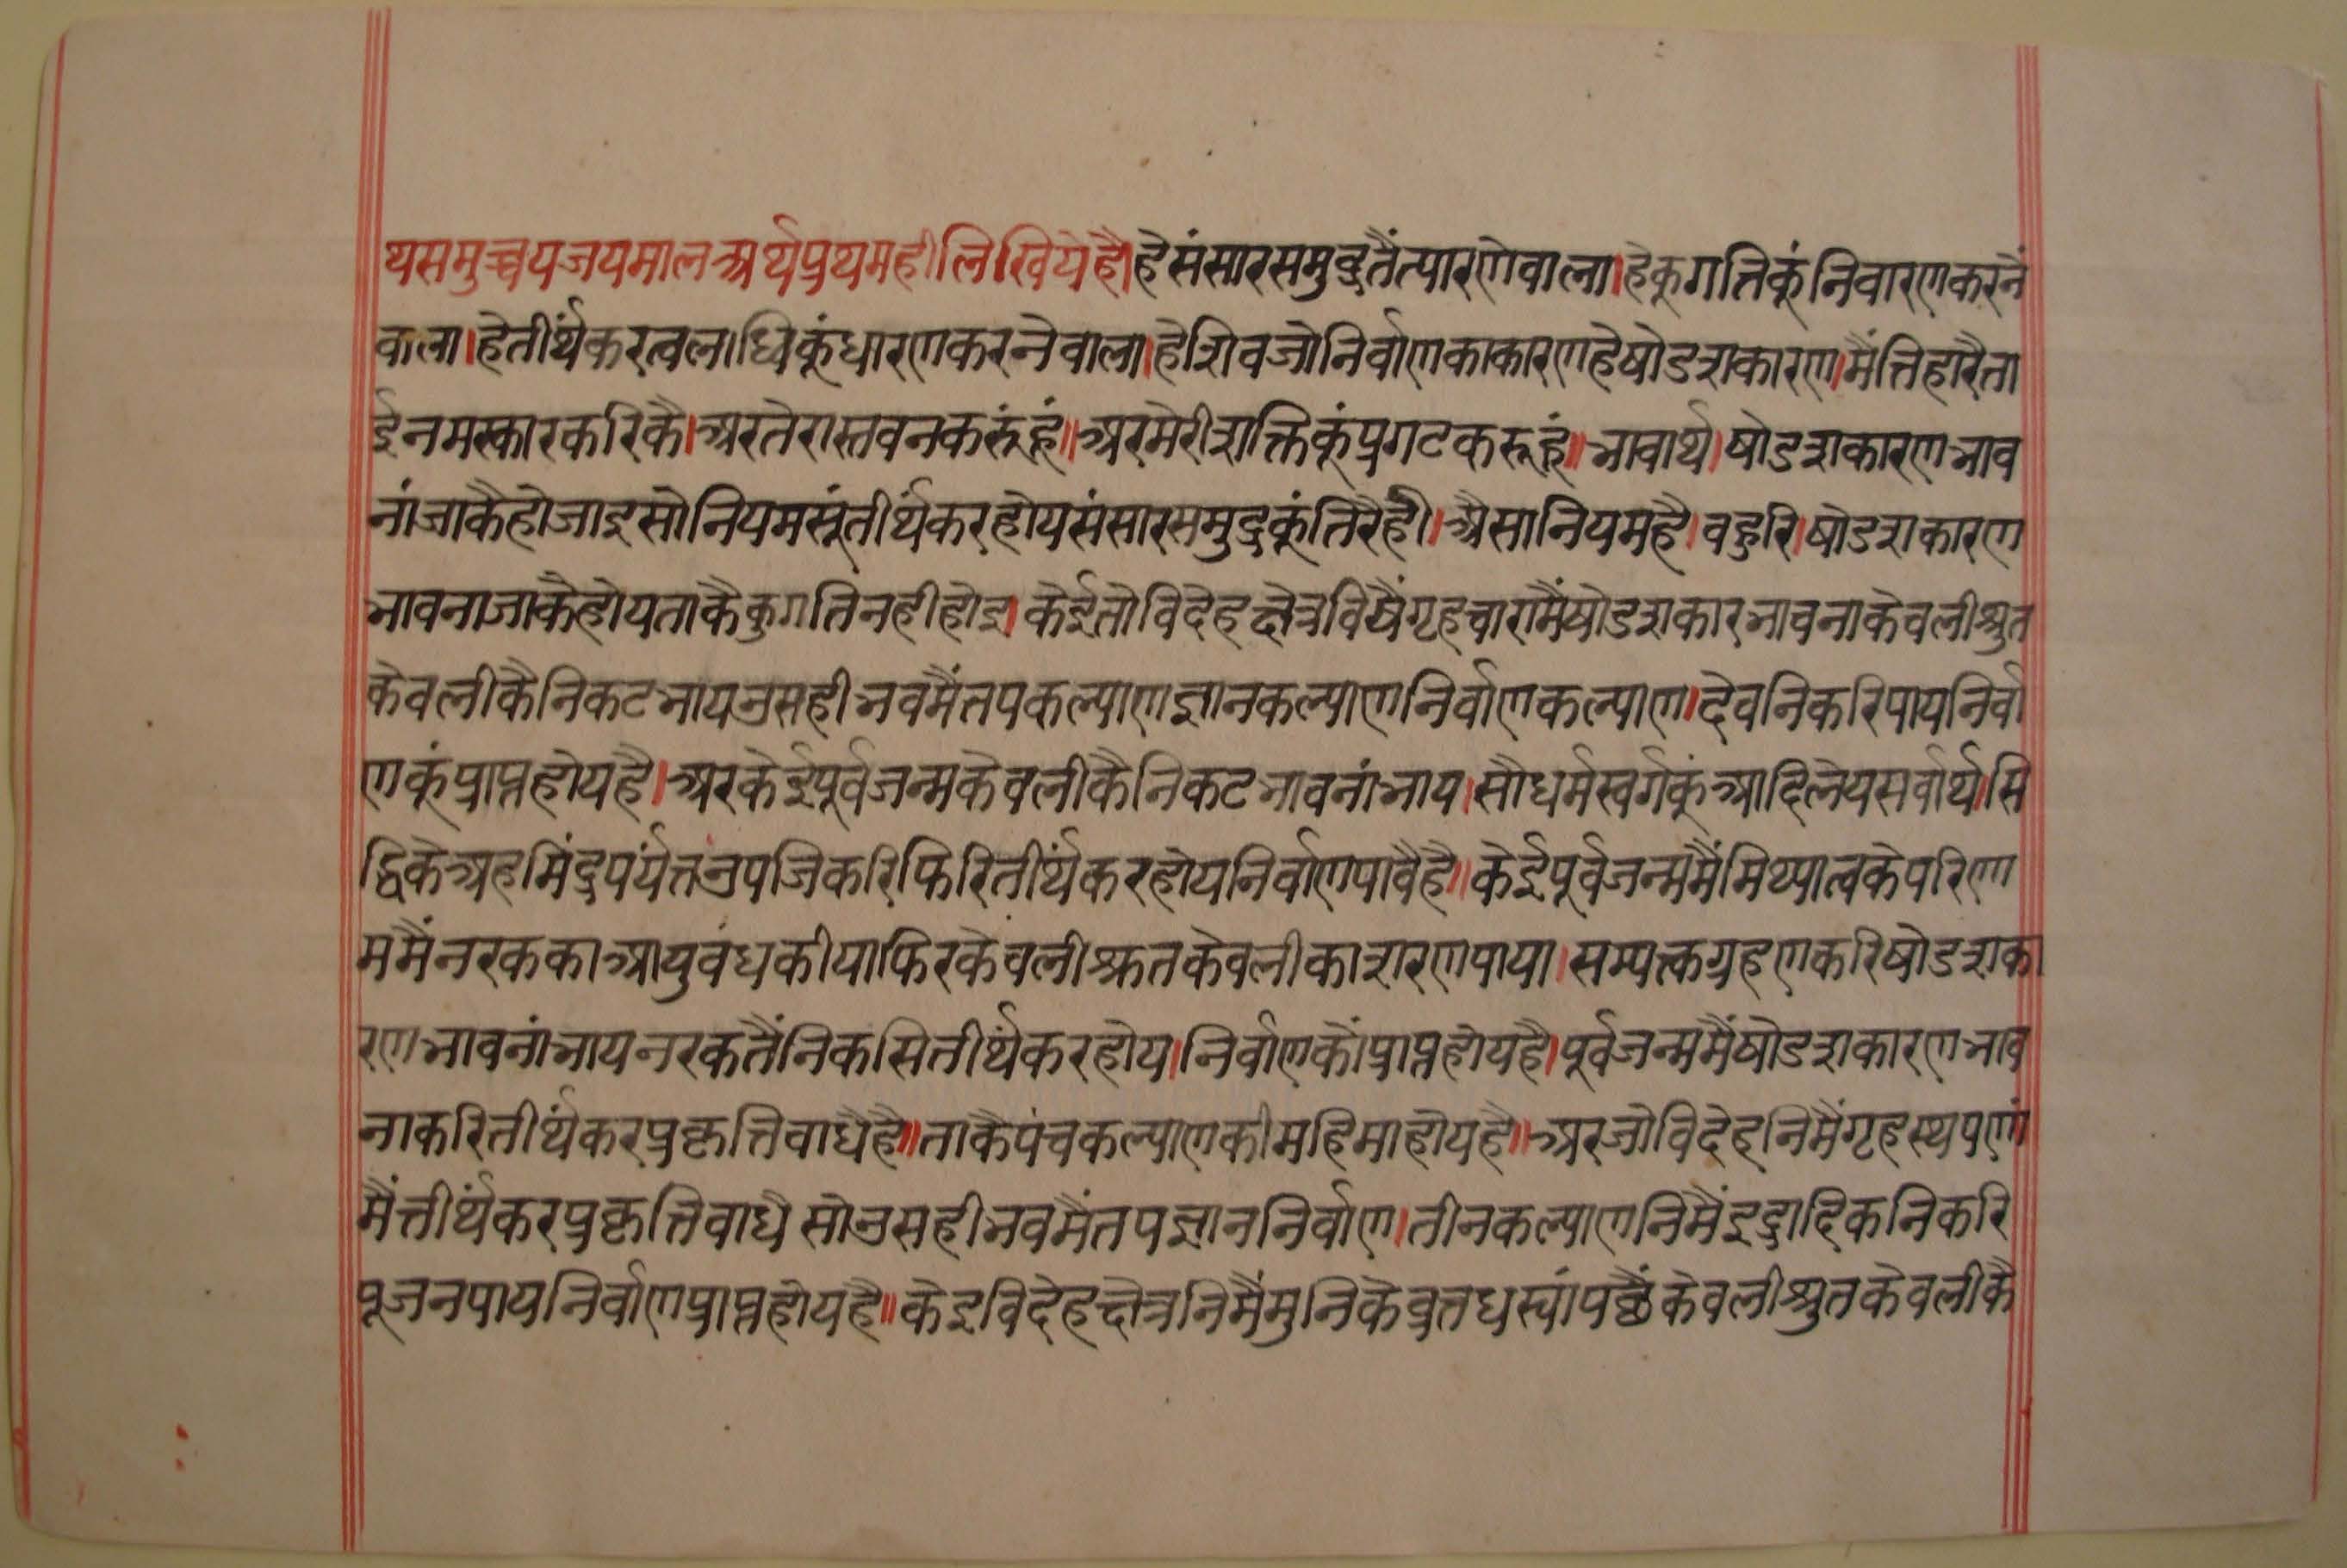 थसमुच्चयजयमालअर्थप्रथमहीलिखियेहै।हेसंसारसमुद्रतैंत्पारणेवाला।हेकूगतिकूंनिवारणकरनें
वाला।हेतीर्थंकरत्वलाधिकूंधारणकरनेवाला।हेशिवजोनिर्वाणकाकारणहेषोडशकारण।मैंतिहारैता
ईनमस्कारकरिकै।अरतेरास्तवनकरूंहूं॥अरमेरीशक्तिकूंप्रगटकरूहूं॥भावार्थ।षोडशकारणभाव
नांजाकैहोजाइसोनियमसूंतीर्थंकरहोयसंसारसमुद्रकूंतिरैहै।अैसानियमहै।वहुरि।षोडशकारण
भावनाजाकैहोयताकैकुगतिनहीहोइ।केईतोविदेहक्षेत्रविषैंगृहचारामैंषोडशकारभावनाकेवलीश्रुत
केवलीकैनिकटभायउसहीभवमैंतपकल्याणज्ञानकल्याणनिर्वाणकल्याण।देवनिकरिपायनिर्वा
णकूंप्राप्तहोयहै।अरकेईपूर्वजन्मकेवलीकैनिकटभावनांभाय।सौधर्मस्वर्गकूंआदिलेयसर्वार्थसि
द्धिकेअहमिंद्रपर्यंतउपजिकरिफिरितीर्थंकरहोयनिर्वाणपावैहै॥केईपूर्वजन्ममैंमिथ्यात्वकेपरिणा
ममैंनरककाआयुवंधकीयाफिरकेवलीश्रुतकेवलीकाशरणपाया।सम्यत्कग्रहणकरिषोडशका
रणभावनांभायनरकतैंनिकसितीर्थंकरहोय।निर्वाणकौंप्राप्तहोयहै।पूर्वजन्ममैंषोडशकारणभाव
नाकरितीर्थंकरप्रकृत्तिवाधैहै॥ताकैपंचकल्याणकीमहिमाहोयहै॥अरजोविदेहनिमैंगृहस्थपणां
मैंत्तीर्थंकरप्रकृत्तिवाधै सोउसहीभवमैंतपज्ञाननिर्वाण।तीनकल्याणनिमैंइंद्रादिकनिकरि
पूजनपायनिर्वाणप्राप्तहोयहै॥केइविदेहक्षेत्रनिमैंमुनिकेव्रतधर्स्यांपछैंकेवलीश्रुतकेवलीकै